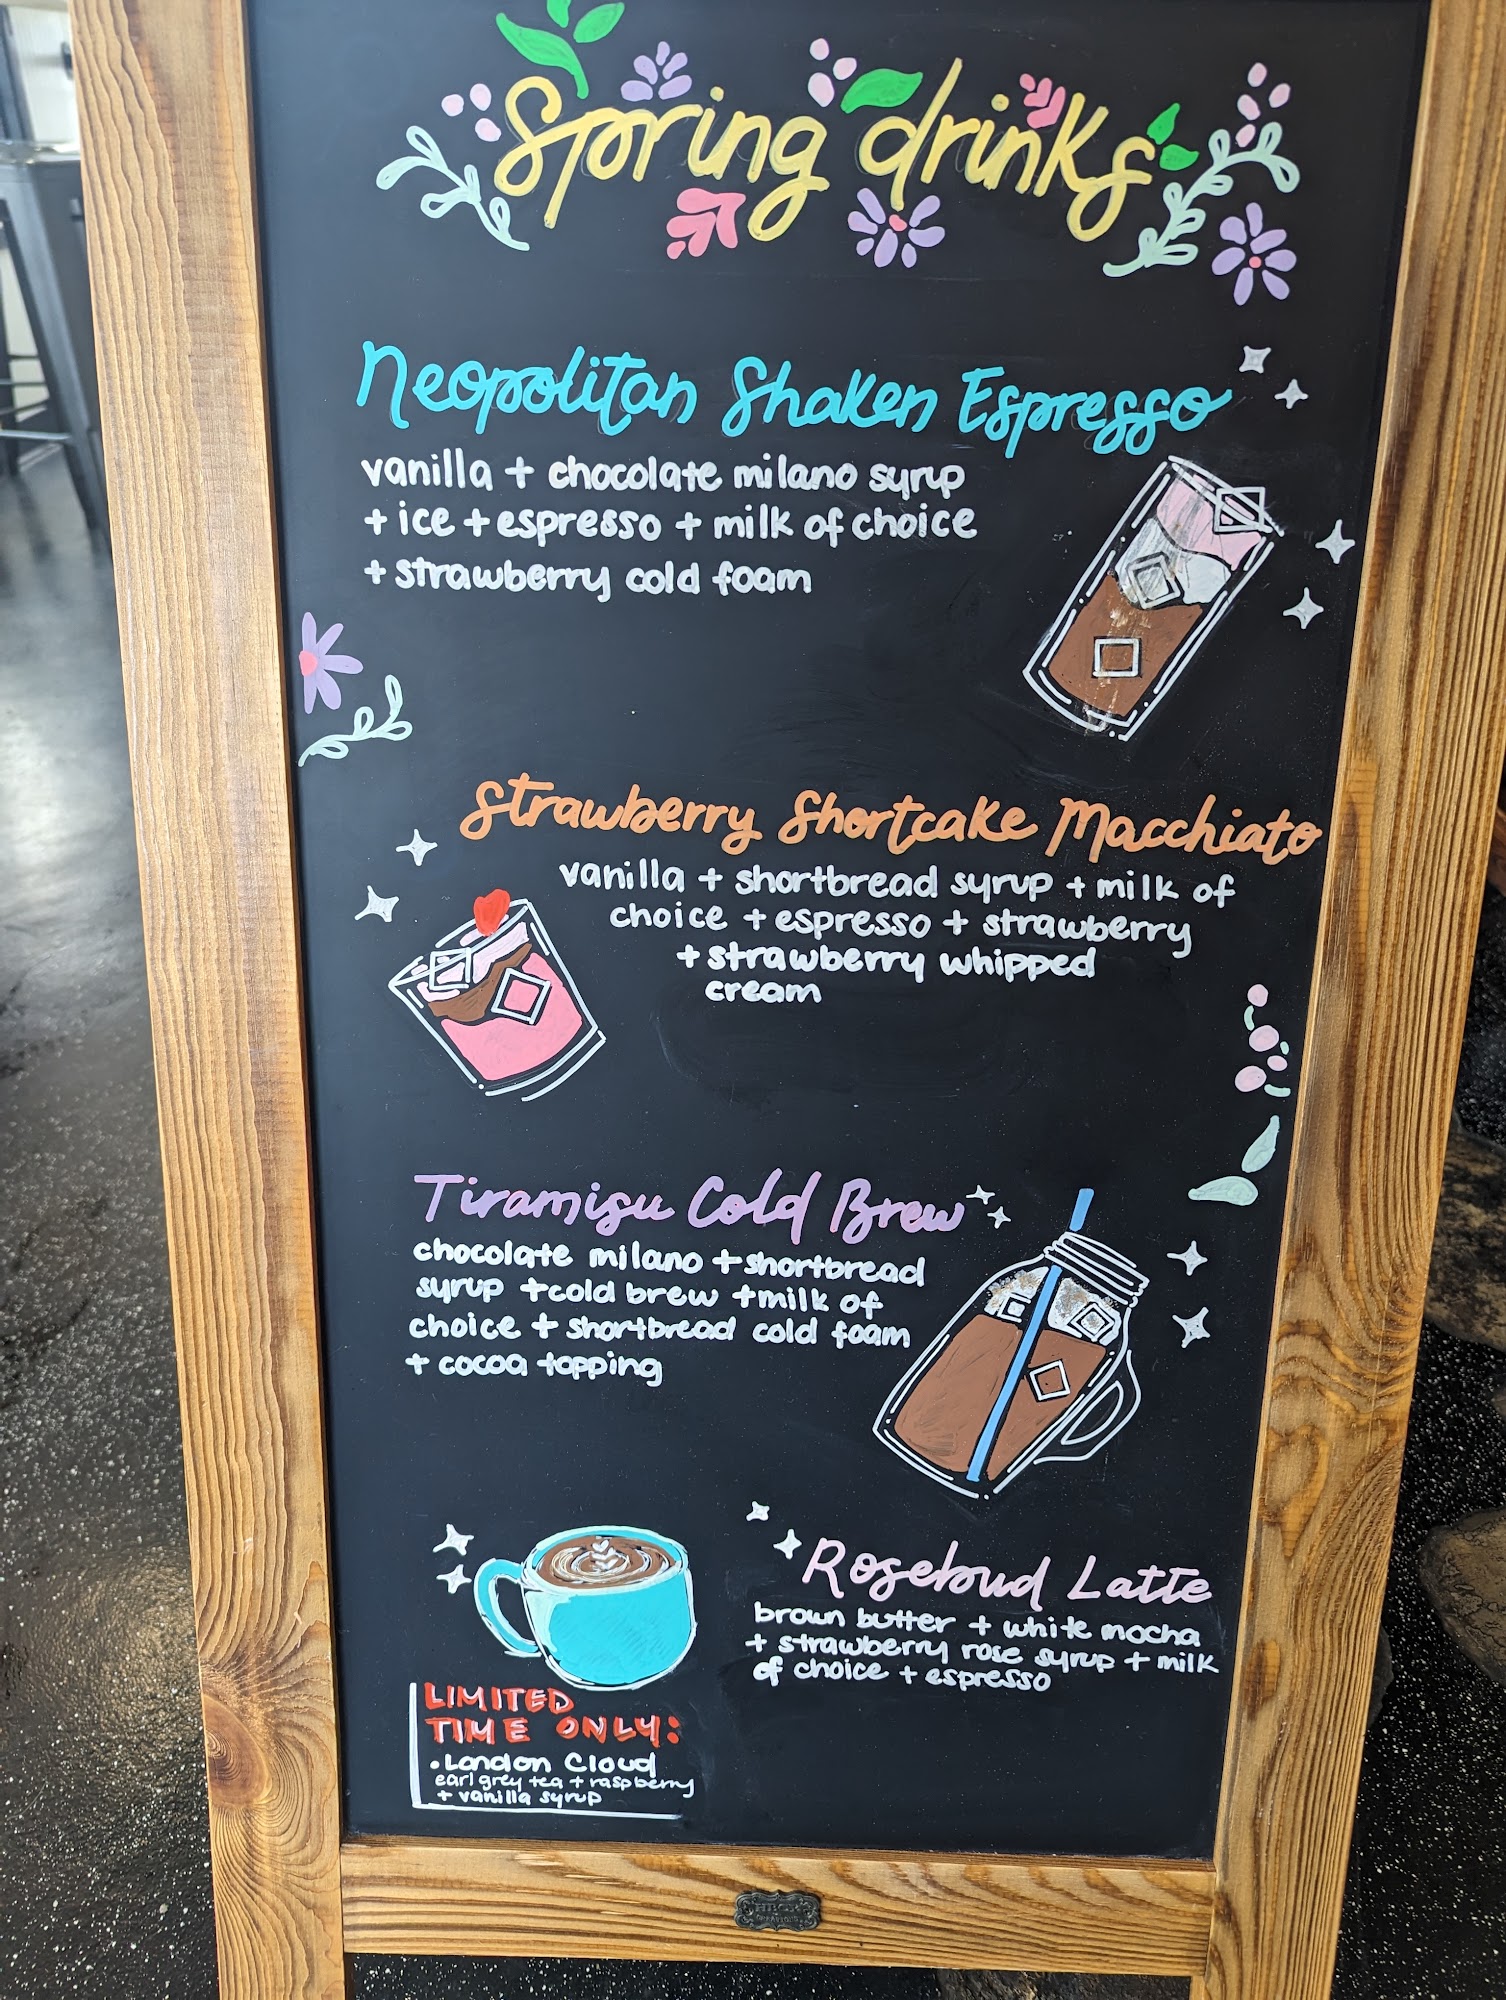 Spring drinks
Neopolitan Shaken Espresso
vanilla + chocolate milano syrup
+ ice + espresso + milk of choice
+ strawberry cold foam
Strawberry Shortcake Macchiato
vanilla + shortbread syrup + milk of
choice + espresso + strawberry
+ strawberry whipped
cream
Tiramisu Cold Brew
chocolate milano + shortbread
syrup + cold brew + milk of
choice + shortbread cold foam
+ cocoa topping
Rosebud Latte
brown butter + white mocha
+ strawberry rose syrup + milk
of choice + espresso
LIMITED
TIME ONLY:
• London Cloud
earl grey tea + raspberry
+ vanilla syrup